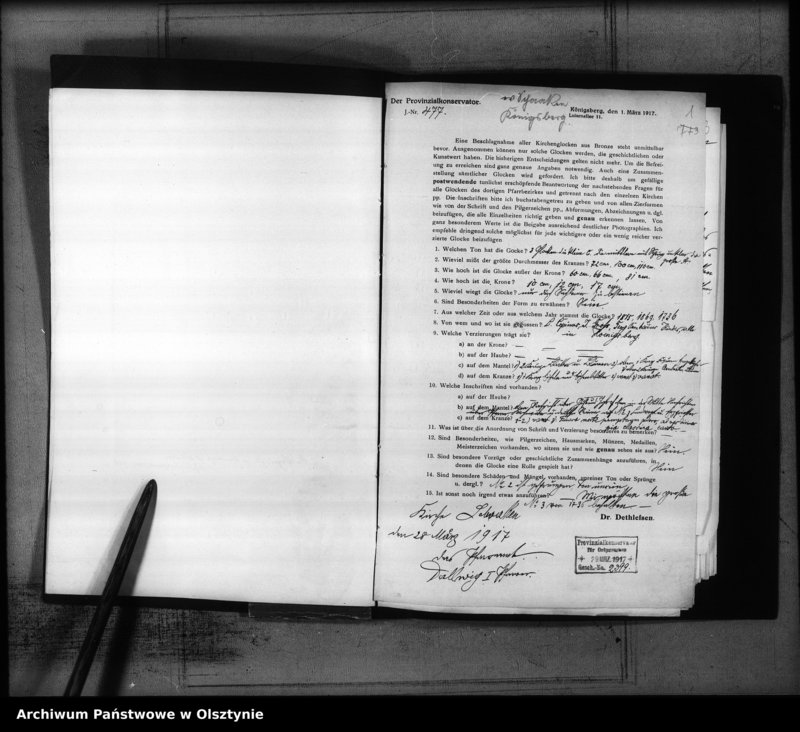 Der Provinzialkonservator.
J.-Nr. 477.
Königsberg
Königsberg, den 1. März 1917.
Luisenallee 11.
1
773
Eine Beschlagnahme aller Kirchenglocken aus Bronze steht unmittelbar
bevor. Ausgenommen können nur solche Glocken werden, die geschichtlichen oder
Kunstwert haben. Die bisherigen Entscheidungen gelten nicht mehr. Um die Befrei-
ung zu erreichen sind ganz genaue Angaben notwendig. Auch eine Zusammen-
stellung sämtlicher Glocken wird gefordert. Ich bitte deshalb um gefällige
postwendende tunlichst erschöpfende Beantwortung der nachstehenden Fragen für
alle Glocken des dortigen Pfarrbezirkes und getrennt nach den einzelnen Kirchen
pp. Die Inschriften bitte ich buchstabengetreu zu geben und von allen Zierformen
wie von der Schrift und den Pilgerzeichen pp., Abformungen, Abzeichnungen u. dgl.
beizufügen, die alle Einzelheiten richtig geben und genau erkennen lassen. Von
ganz besonderem Werte ist die Beigabe ausreichend deutlicher Photographien. Ich
empfehle dringend solche möglichst für jede wichtigere oder ein wenig reicher ver-
zierte Glocke beizufügen
1. Welchen Ton hat die Glocke? 3 Glocken die kleine C.
2. Wieviel mißt der größte Durchmesser des Kranzes? 72 cm, 100 cm, 110 cm.
3. Wie hoch ist die Glocke außer der Krone? 60 cm, 66 cm, 81 cm.
4. Wie hoch ist die Krone? 10 cm, 12 cm, 17 cm
5. Wieviel wiegt die Glocke?
6. Sind Besonderheiten der Form zu erwähnen? Nein
7. Aus welcher Zeit oder aus welchem Jahr stammt die Glocke? 1869, 1736
8. Von wem und wo ist sie gegossen? in Königsberg
9. Welche Verzierungen trägt sie?
a) an der Krone? —
b) auf der Haube? —
c) auf dem Mantel?
d) auf dem Kranze?
10. Welche Inschriften sind vorhanden?
a) auf der Haube?
b) auf dem Mantel?
c) auf dem Kranze?
11. Was ist über die Anordnung von Schrift und Verzierung besonderes zu bemerken? —
12. Sind Besonderheiten, wie Pilgerzeichen, Hausmarken, Münzen, Medaillen,
Meisterzeichen vorhanden, wo sitzen sie und wie genau sehen sie aus? Nein
13. Sind besondere Vorzüge oder geschichtliche Zusammenhänge anzuführen, in
denen die Glocke eine Rolle gespielt hat? Nein
14. Sind besondere Schäden und Mängel vorhanden, unreiner Ton oder Sprünge
u. dergl.? No 2 ist gesprungen Ton unrein.
15. Ist sonst noch irgend etwas anzuführen? Wir möchten die große
No 3 von 1736 behalten —
Dr. Dethlefsen.
Kirche Schaaken
den 28 März 1917
das Pfarramt
Dallwig I Pfarrer.
Provinzialkonservator
für Ostpreussen
+ 29 MRZ. 1917 +
Gesch.-No. 2399
Archiwum Państwowe w Olsztynie